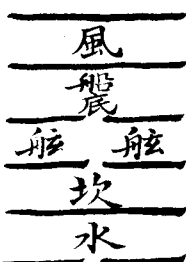 風
船
底
舷 舷
坎
水